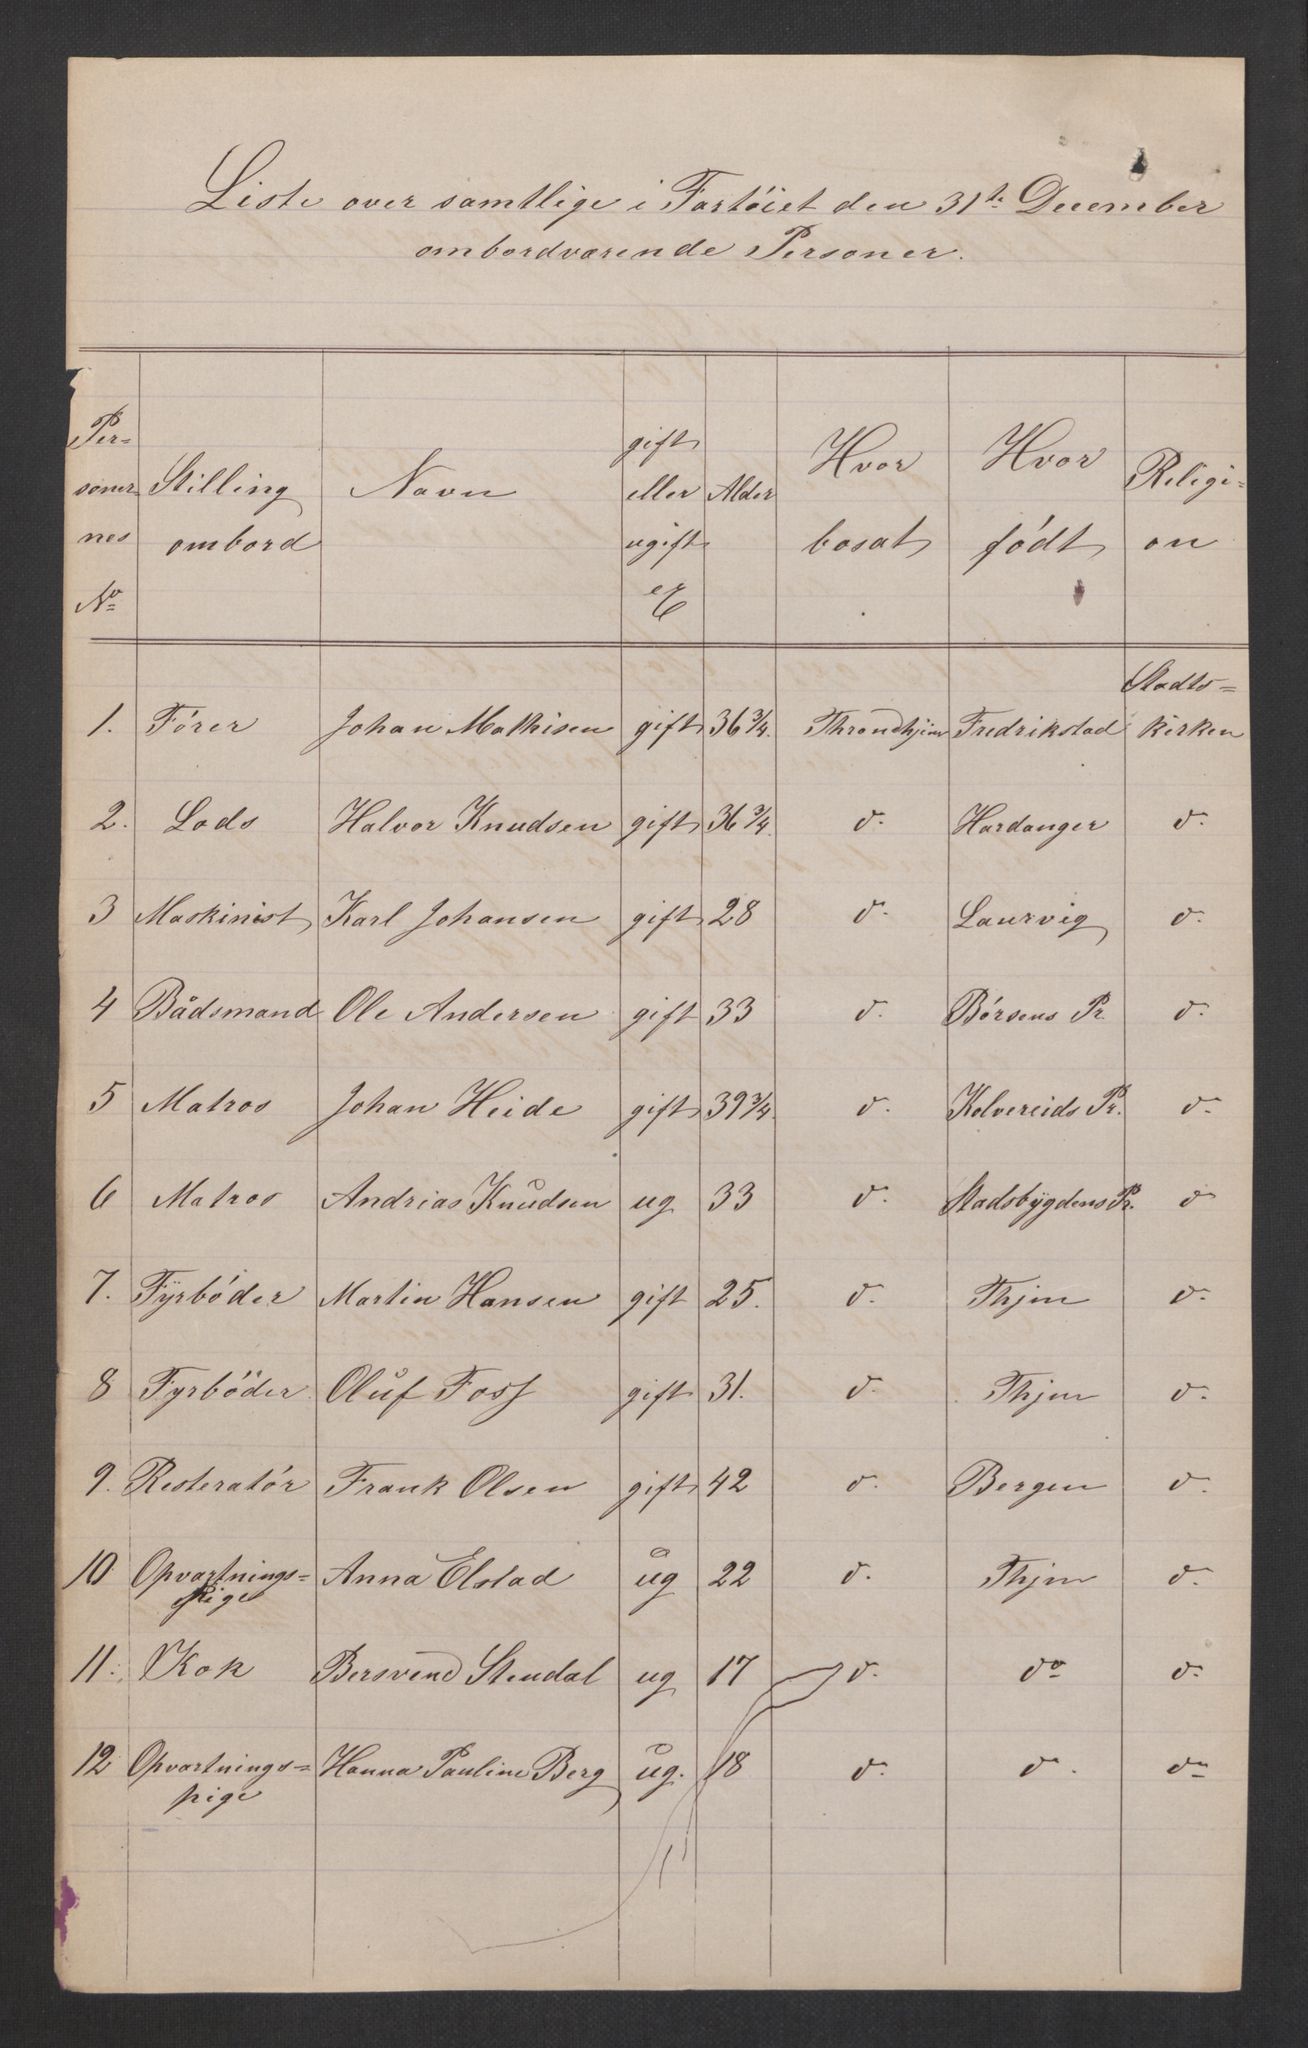 Liste over samtlige i Fartöiet den 31te December
ombordværende Personer.
Personernes No | Stilling ombord | Navn | gift eller ugift | Alder | Hvor bosat | Hvor födt | Religion
1. Förer Johan Mathisen gift 36 3/4. Throndhjem Fredrikstad Stadts=kirken
2. Lods Halvor Knudsen gift 36 3/4. do. Hardanger do.
3 Maskinist Karl Johansen gift 28 do. Laurvig do.
4 Bådsmand Ole Andersen gift 33 do. Börsens Pr. do.
5 Matros Johan Heide gift 39 3/4. do. Kolvereids Pr. do.
6 Matros Andrias Knudsen ug 33 do. Stadsbygdens Pr. do
7. Fyrböder Martin Hansen gift 25. do. Thjm do.
8 Fyrböder Oluf Foss gift 31. do. Thjm do.
9. Resteratör Frank Olsen gift 42 do. Bergen do.
10 Opvartnings=pige Anna Elstad ug 22 do. Thjm do.
11. Kok Bersvend Stendal ug 17 do. do do.
12 Opvartnings=pige Hanna Pauline Berg ug. 18 do. do. do